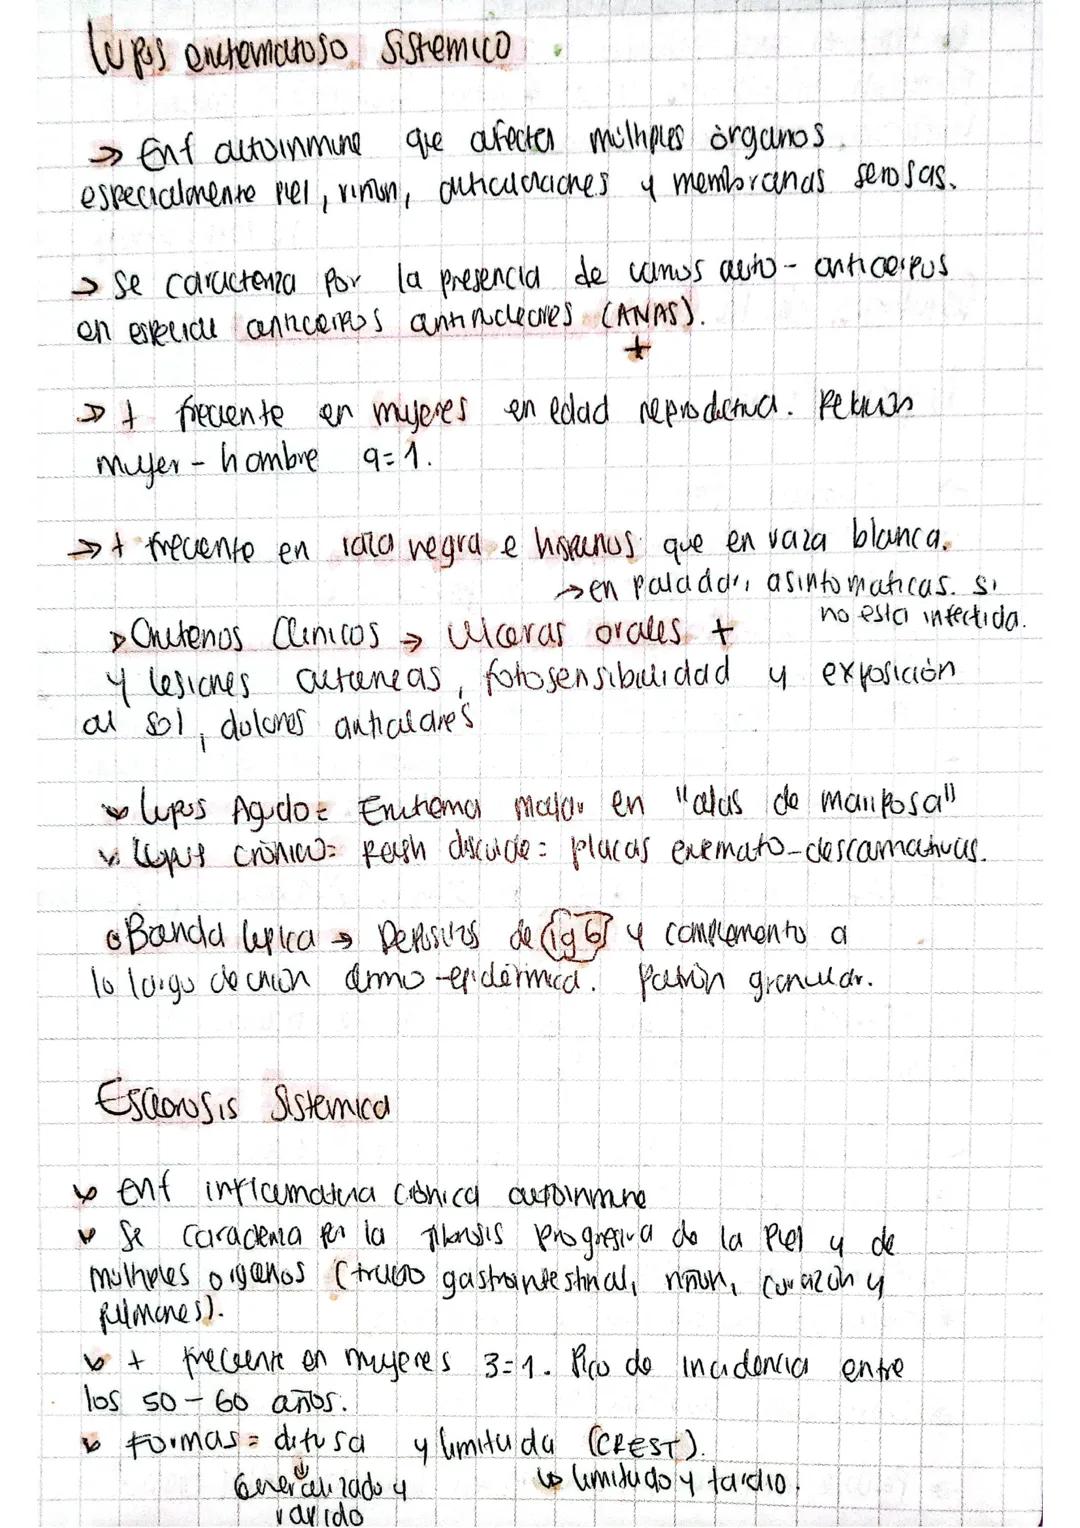 Lupus eritematoso Sistemico
→ Enf autoinmune que afecta múltiples órganos
especialmente piel, riñon, articulaciones y membranas serosas.
→ Se caracteriza por la presencia de varios auto-anticuerpos
en especial anticuerpos antinucleares (ANAS).
+
→ + frecuente en mujeres en edad reproductiva. Relación
mujer - hombre 9=1.
→ + frecuente en raza negra e hispanos que en raza blanca.
→ en paladar, asintomaticas. si
no esta infectida.
Criterios Clinicos → Ulceras orales +
y lesiones cutaneas, fotosensibilidad y exposición
al sol, dolores articulares
Lupus Agudo= Eritema malar en "alas de mariposa"
Lupus crónico= Rash discoide = placas eremato-descamativas.
Banda lupica → Depositos de IgG y complemento a
lo largo de unión dermo-epidérmica. Patrón granular.
Esclerosis Sistemica
enf inflamatoria crónica autoinmune
Se caracteriza por la fibrosis progresiva de la piel y de
múltiples organos (tracto gastrointestinal, riñon, corazón y
pulmones).
+ frecuente en mujeres 3=1. Pico de incidencia entre
los 50-60 años.
Formas= difusa y limitada (CREST).
Generalizado y ↳ limitado y tardio.
rapido